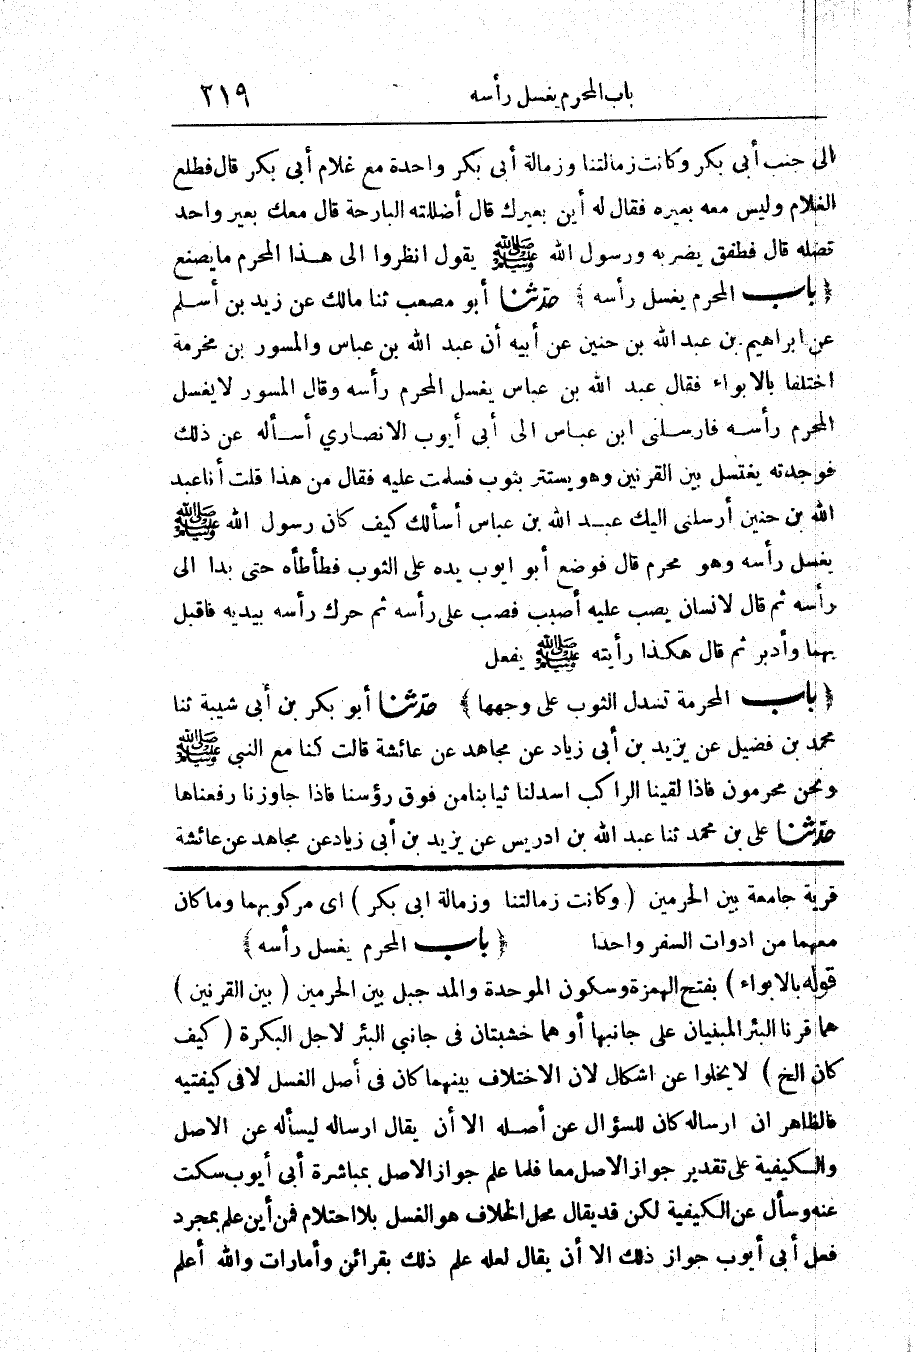 باب المحرم يغسل رأسه ٢١٩
الى جنب أبى بكر وكانت زمالتنا وزمالة أبى بكر واحدة مع غلام أبى بكر قال فطلع
الغلام وليس معه بعيره فقال له أين بعيرك قال أضللته البارحة قال معك بعير واحد
تضله قال فطفق يضربه ورسول الله ﷺ يقول انظروا الى هـذا المحرم مايصنع
﴿ باب المحرم يغسل رأسه ﴾ حدّثنا أبو مصعب ثنا مالك عن زيد بن أسـلم
عن ابراهيم بن عبد الله بن حنين عن أبيه أن عبد الله بن عباس والمسور بن مخرمة
اختلفا بالابواء فقال عبد الله بن عباس يغسل المحرم رأسه وقال المسور لايغسل
المحرم رأسـه فارسلنى ابن عبـاس الى أبى أيوب الانصاري أسـأله عن ذلك
فوجدته يغتسل بين القرنين وهو يستتر بثوب فسلمت عليه فقال من هذا قلت أنا عبد
الله بن حنين أرسلنى اليك عبـد الله بن عباس أسألك كيف كان رسول الله ﷺ
يغسل رأسه وهو محرم قال فوضع أبو ايوب يده على الثوب فطأطأه حتى بدا الى
رأسه ثم قال لانسان يصب عليه أصبب فصب على رأسه ثم حرك رأسه بيديه فاقبل
بهما وأدبر ثم قال هكذا رأيته ﷺ يفعل
﴿ باب المحرمة تسدل الثوب على وجهها ﴾ حدّثنا أبو بكر بن أبى شيبة ثنا
محمد بن فضيل عن يزيد بن أبى زياد عن مجاهد عن عائشة قالت كنا مع النبي ﷺ
ونحن محرمون فاذا لقينا الراكب اسدلنا ثيابنا من فوق رؤسنا فاذا جاوزنا رفعناها
حدّثنا على بن محمد ثنا عبد الله بن ادريس عن يزيد بن أبى زياد عن مجاهد عن عائشة
قرية جامعة بين الحرمين ( وكانت زمالتنا وزمالة ابى بكر ) اى مركوبهما وما كان
معهما من ادوات السفر واحدا ﴿ باب المحرم يغسل رأسه ﴾
قوله بالابواء ) بفتح الهمزة وسكون الموحدة والمد جبل بين الحرمين ( بين القرنين )
هما قرنا البئر المبنيان على جانبها أو هما خشبتان فى جانبي البئر لاجل البكرة ( كيف
كان الخ ) لايخلوا عن اشكال لان الاختلاف بينهما كان فى أصل الغسل لافى كيفتيه
فالظاهر ان ارساله كان للسؤال عن أصـله الا أن يقال ارساله ليسأله عن الاصل
والكيفية على تقدير جواز الاصل معا فلما علم جواز الاصل بمباشرة أبى أيوب سكت
عنه وسأل عن الكيفية لكن قد يقال محل الخلاف هو الغسل بلا احتلام فمن أين علم بمجرد
فعل أبى أيوب جواز ذلك الا أن يقال لعله علم ذلك بقرائن وأمارات والله أعلم